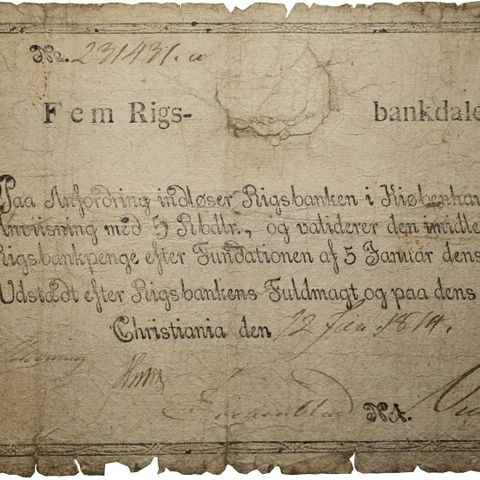 No. 231431. a
Fem Rigs- bankdale
Paa Anfordring indløser Rigsbanken i Kiøbenhav
Anviisning med 5 Rbdlr., og validerer den imidle
Rigsbankpenge efter Fundationen af 5 Januar dens
Udstædt efter Rigsbankens Fuldmagt og paa dens
Christiania den 12 Jan 1814.
No.